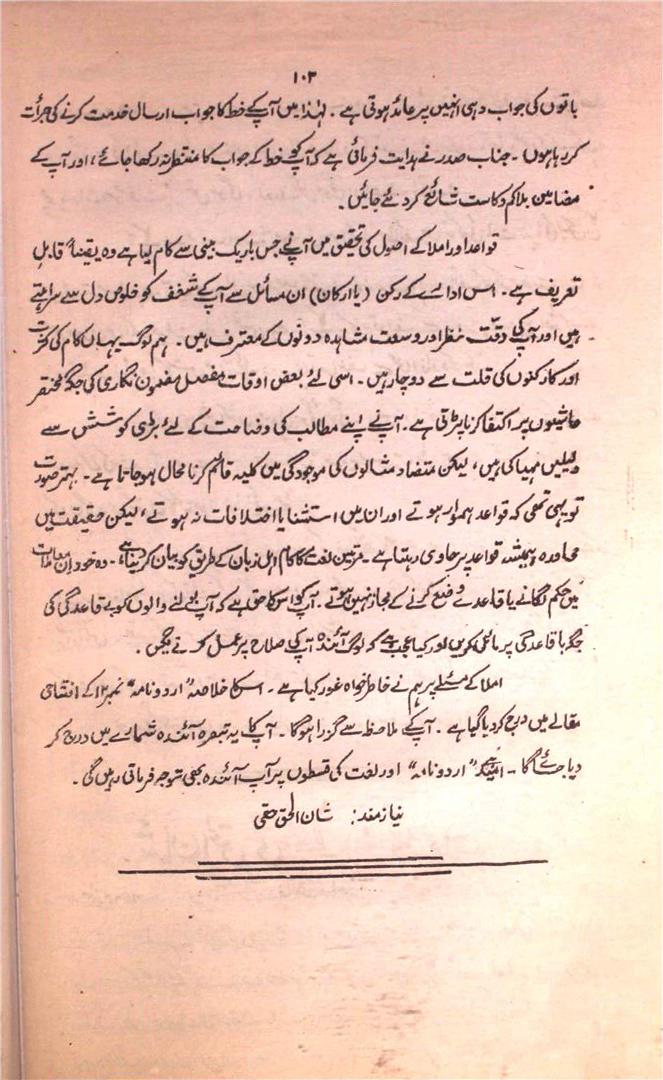 ۱۰۳
باتوں کی جواب دہی انہیں پر عائد ہوتی ہے۔ لہٰذا میں آپ کے خط کا جواب ارسال خدمت کرنے کی جرأت
کر رہا ہوں۔ جناب صدر نے ہدایت فرمائی ہے کہ آپ کو خط کے جواب کا منتظر نہ رکھا جائے، اور آپ کے
مضامین بلا کم و کاست شائع کر دئے جائیں۔
قواعد اور املا کے اصول کی تحقیق میں آپ نے جس باریک بینی سے کام لیا ہے وہ یقیناً قابلِ
تعریف ہے۔ اس ادارے کے رکن (یا ارکان) ان مسائل سے آپ کے شغف کو خلوص دل سے سراہتے
ہیں اور آپ کی دقّت نظر اور وسعت مشاہدہ دونوں کے معترف ہیں۔ ہم لوگ یہاں کام کی کثرت
اور کارکنوں کی قلت سے دوچار ہیں۔ اسی لئے بعض اوقات مفصل مضمون نگاری کی جگہ مختصر
حاشیوں پر اکتفا کرنا پڑتی ہے۔ آپ نے اپنے مطالب کی وضاحت کے لئے بڑی کوشش سے
دلیلیں مہیا کی ہیں، لیکن متضاد مثالوں کی موجودگی میں کلیہ قائم کرنا محال ہو جاتا ہے۔ بہتر صورت
تو یہی تھی کہ قواعد ہموار ہوتے اور ان میں استثنا یا اختلافات نہ ہوتے، لیکن حقیقت میں
محاورہ ہمیشہ قواعد پر حاوی رہتا ہے۔ مرتبین لغت کا کام اہل زبان کے طریق کو بیان کر دینا ہے۔ وہ خود ان معاملات
میں حکم لگانے یا قاعدے وضع کرنے کے مجاز نہیں ہوتے۔ آپ کو اس کا حق ہے کہ آپ بولنے والوں کو بے قاعدگی کی
جگہ باقاعدگی پر مائل کریں اور کیا عجب ہے کہ لوگ آئندہ آپ کی صلاح پر عمل کرنے لگیں۔
املا کے مسئلے پر ہم نے خاطر خواہ غور کیا ہے۔ اس کا خلاصہ "اردو نامہ" نمبر ۱۲ کے افتتاحی
مقالے میں درج کر دیا گیا ہے۔ آپ کے ملاحظہ سے گزرا ہوگا۔ آپ کا یہ تبصرہ آئندہ شمارے میں درج کر
دیا جائے گا۔ "اردو نامہ" اور لغت کی قسطوں پر آپ آئندہ بھی توجہ فرماتی رہیں گی۔
نیاز مند: شان الحق حقی